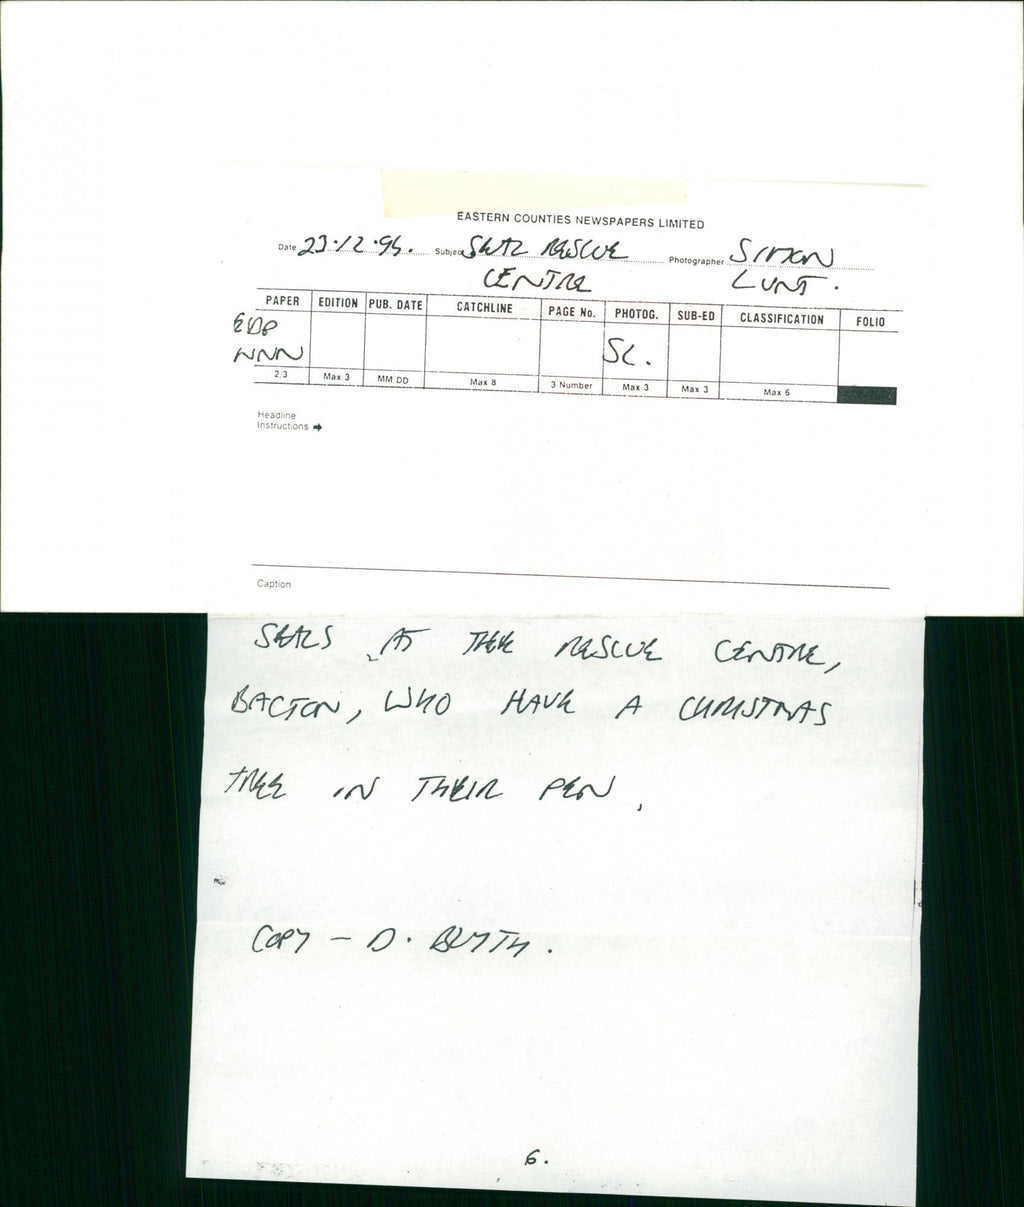 EASTERN COUNTIES NEWSPAPERS LIMITED
Date 23.12.95. Subject SEAL RESCUE CENTRE Photographer SIMON LUNT.
PAPER EDITION PUB. DATE CATCHLINE PAGE No. PHOTOG. SUB-ED CLASSIFICATION FOLIO
EDP
NNN SL.
2/3 Max 3 MM DD Max 8 3 Number Max 3 Max 3 Max 6
Headline
Instructions →
Caption
SEALS AT THE RESCUE CENTRE,
BACTON, WHO HAVE A CHRISTMAS
TREE IN THEIR PEN.
COPY - D. BLYTH.
6.